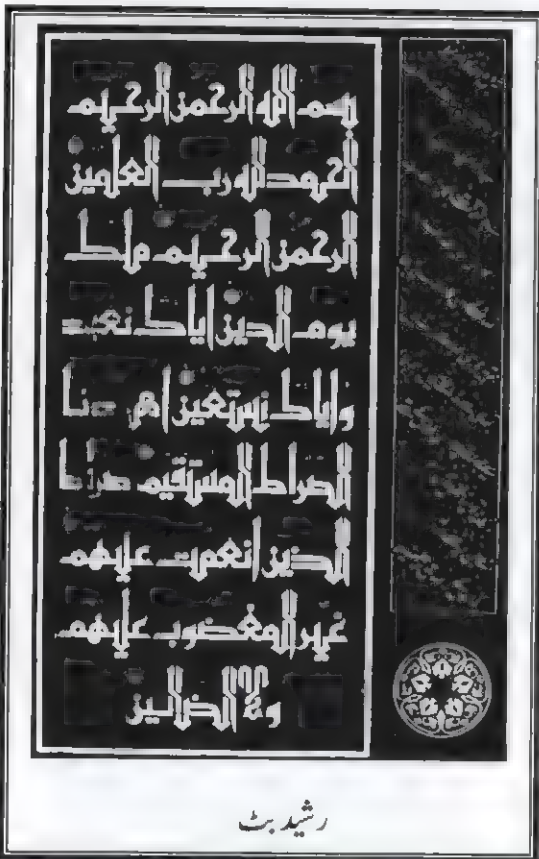 بسم الله الرحمن الرحيم
الحمد لله رب العلمين
الرحمن الرحيم ملك
يوم الدين اياك نعبد
واياك نستعين اهدنا
الصراط المستقيم صراط
الذين انعمت عليهم
غير المغضوب عليهم
ولا الضالين
رشید بٹ